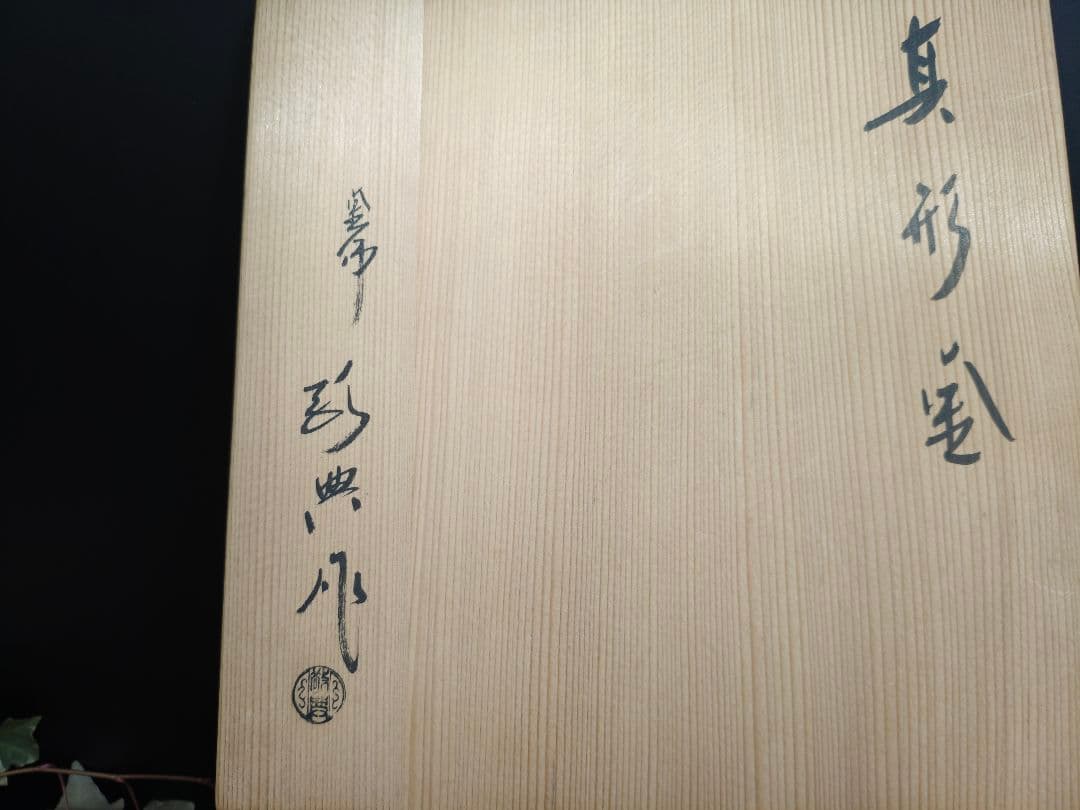 真形釜
釜師 敬典作
敬典